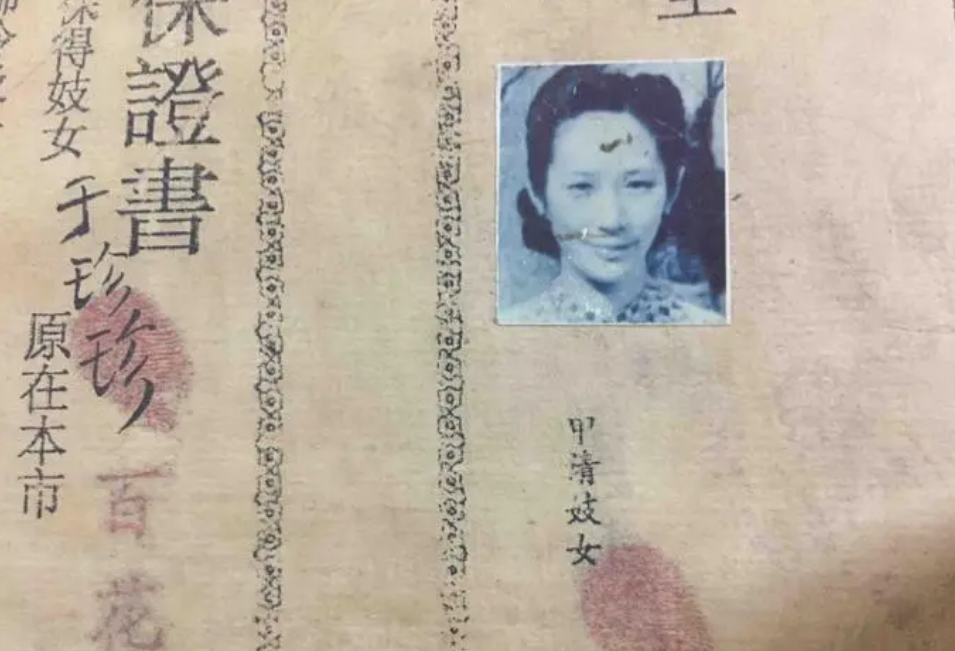 甲清妓女
保證書
百花
保得妓女于珍珍原在本市